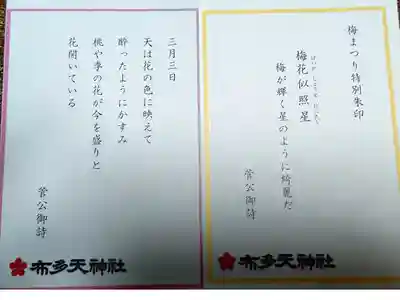 梅まつり特別朱印
梅花似照星
梅が輝く星のように綺麗だ
菅公御詩
布多天神社
三月三日
天は花の色に映えて
酔ったようにかすみ
桃や李の花が今を盛りと
花開いている
菅公御詩
布多天神社